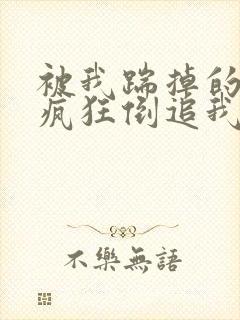 被我踹掉的
疯狂倒追我
不樂無語